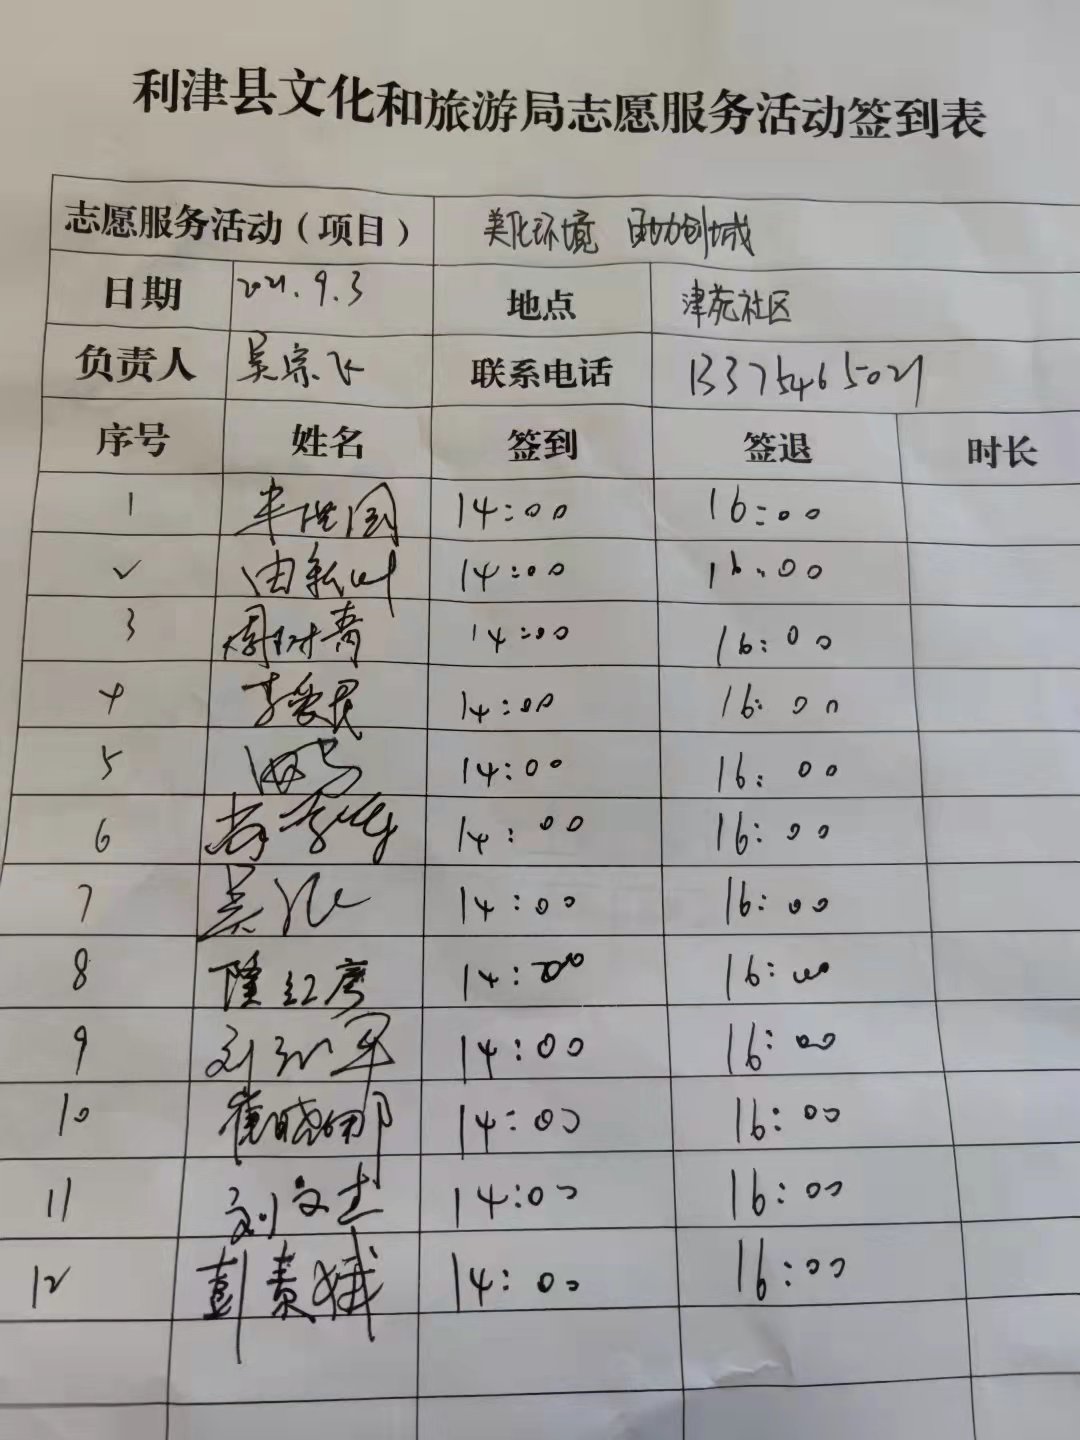 利津县文化和旅游局志愿服务活动签到表
志愿服务活动（项目） 美化环境 助力创城
日期 2021.9.3 地点 津苑社区
负责人 吴宗飞 联系电话 13375465021
序号 姓名 签到 签退 时长
1 14:00 16:00
2 14:00 16:00
3 14:00 16:00
4 李爱民 14:00 16:00
5 14:00 16:00
6 14:00 16:00
7 14:00 16:00
8 隆红霞 14:00 16:00
9 14:00 16:00
10 崔晓娜 14:00 16:00
11 刘文杰 14:00 16:00
12 14:00 16:00